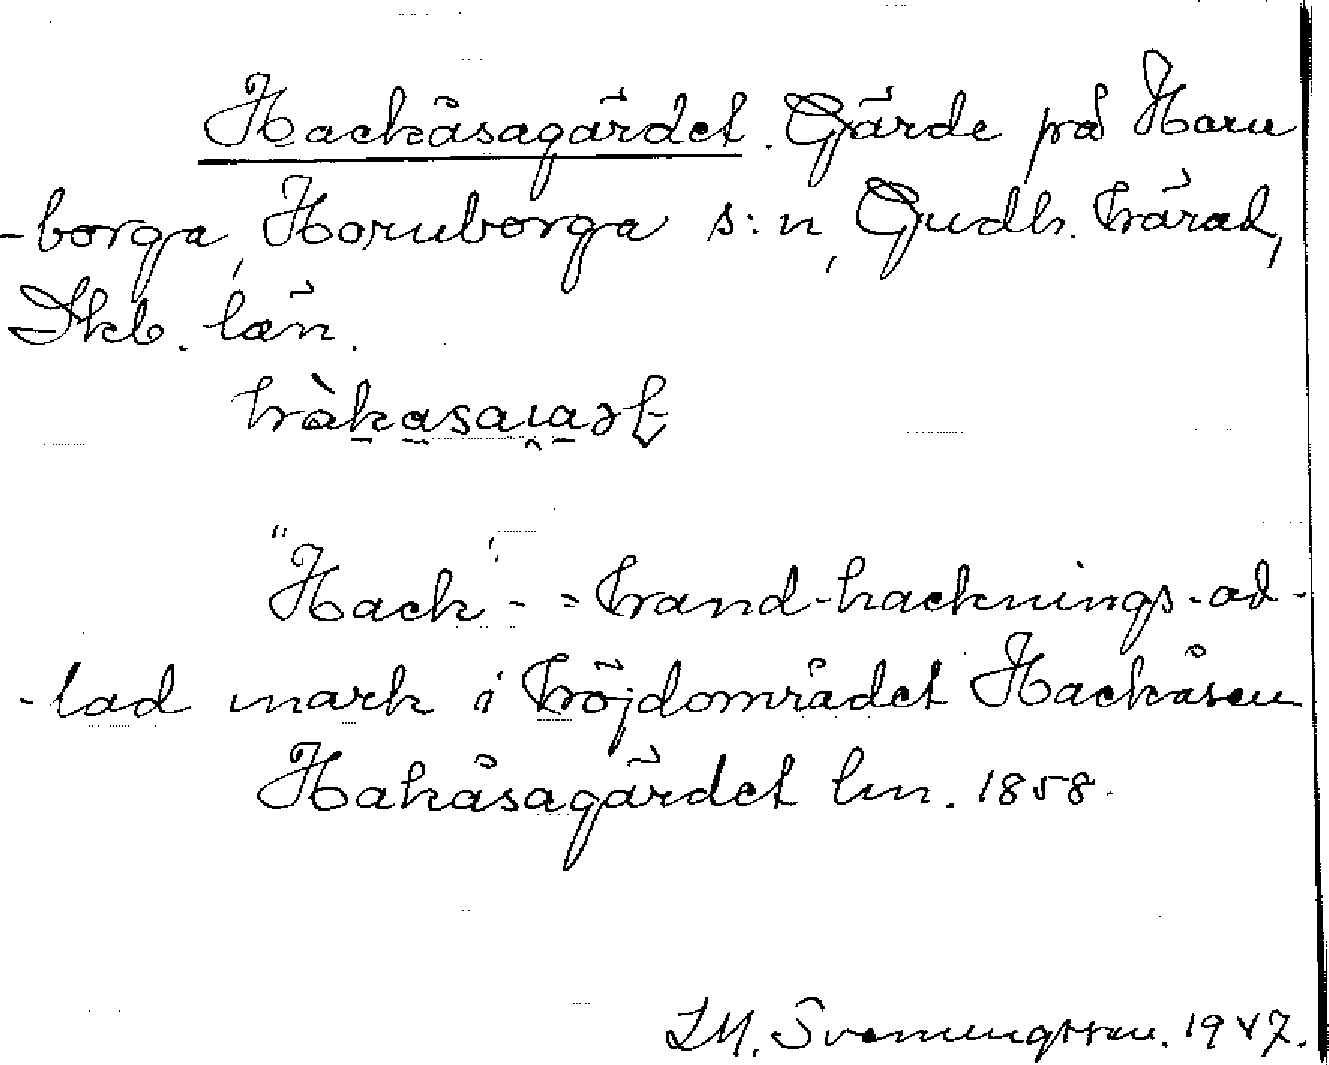 Hackåsagärdet. Gärde på Horn
-borga, Hornborga s:n, Gudh. härad,
Skb. län.
"Hack"- = hand-hacknings-od-
-lad mark i höjdområdet Hackåsen
Hakåsagärdet lm. 1858.
I.M. Svenungsson. 1947.